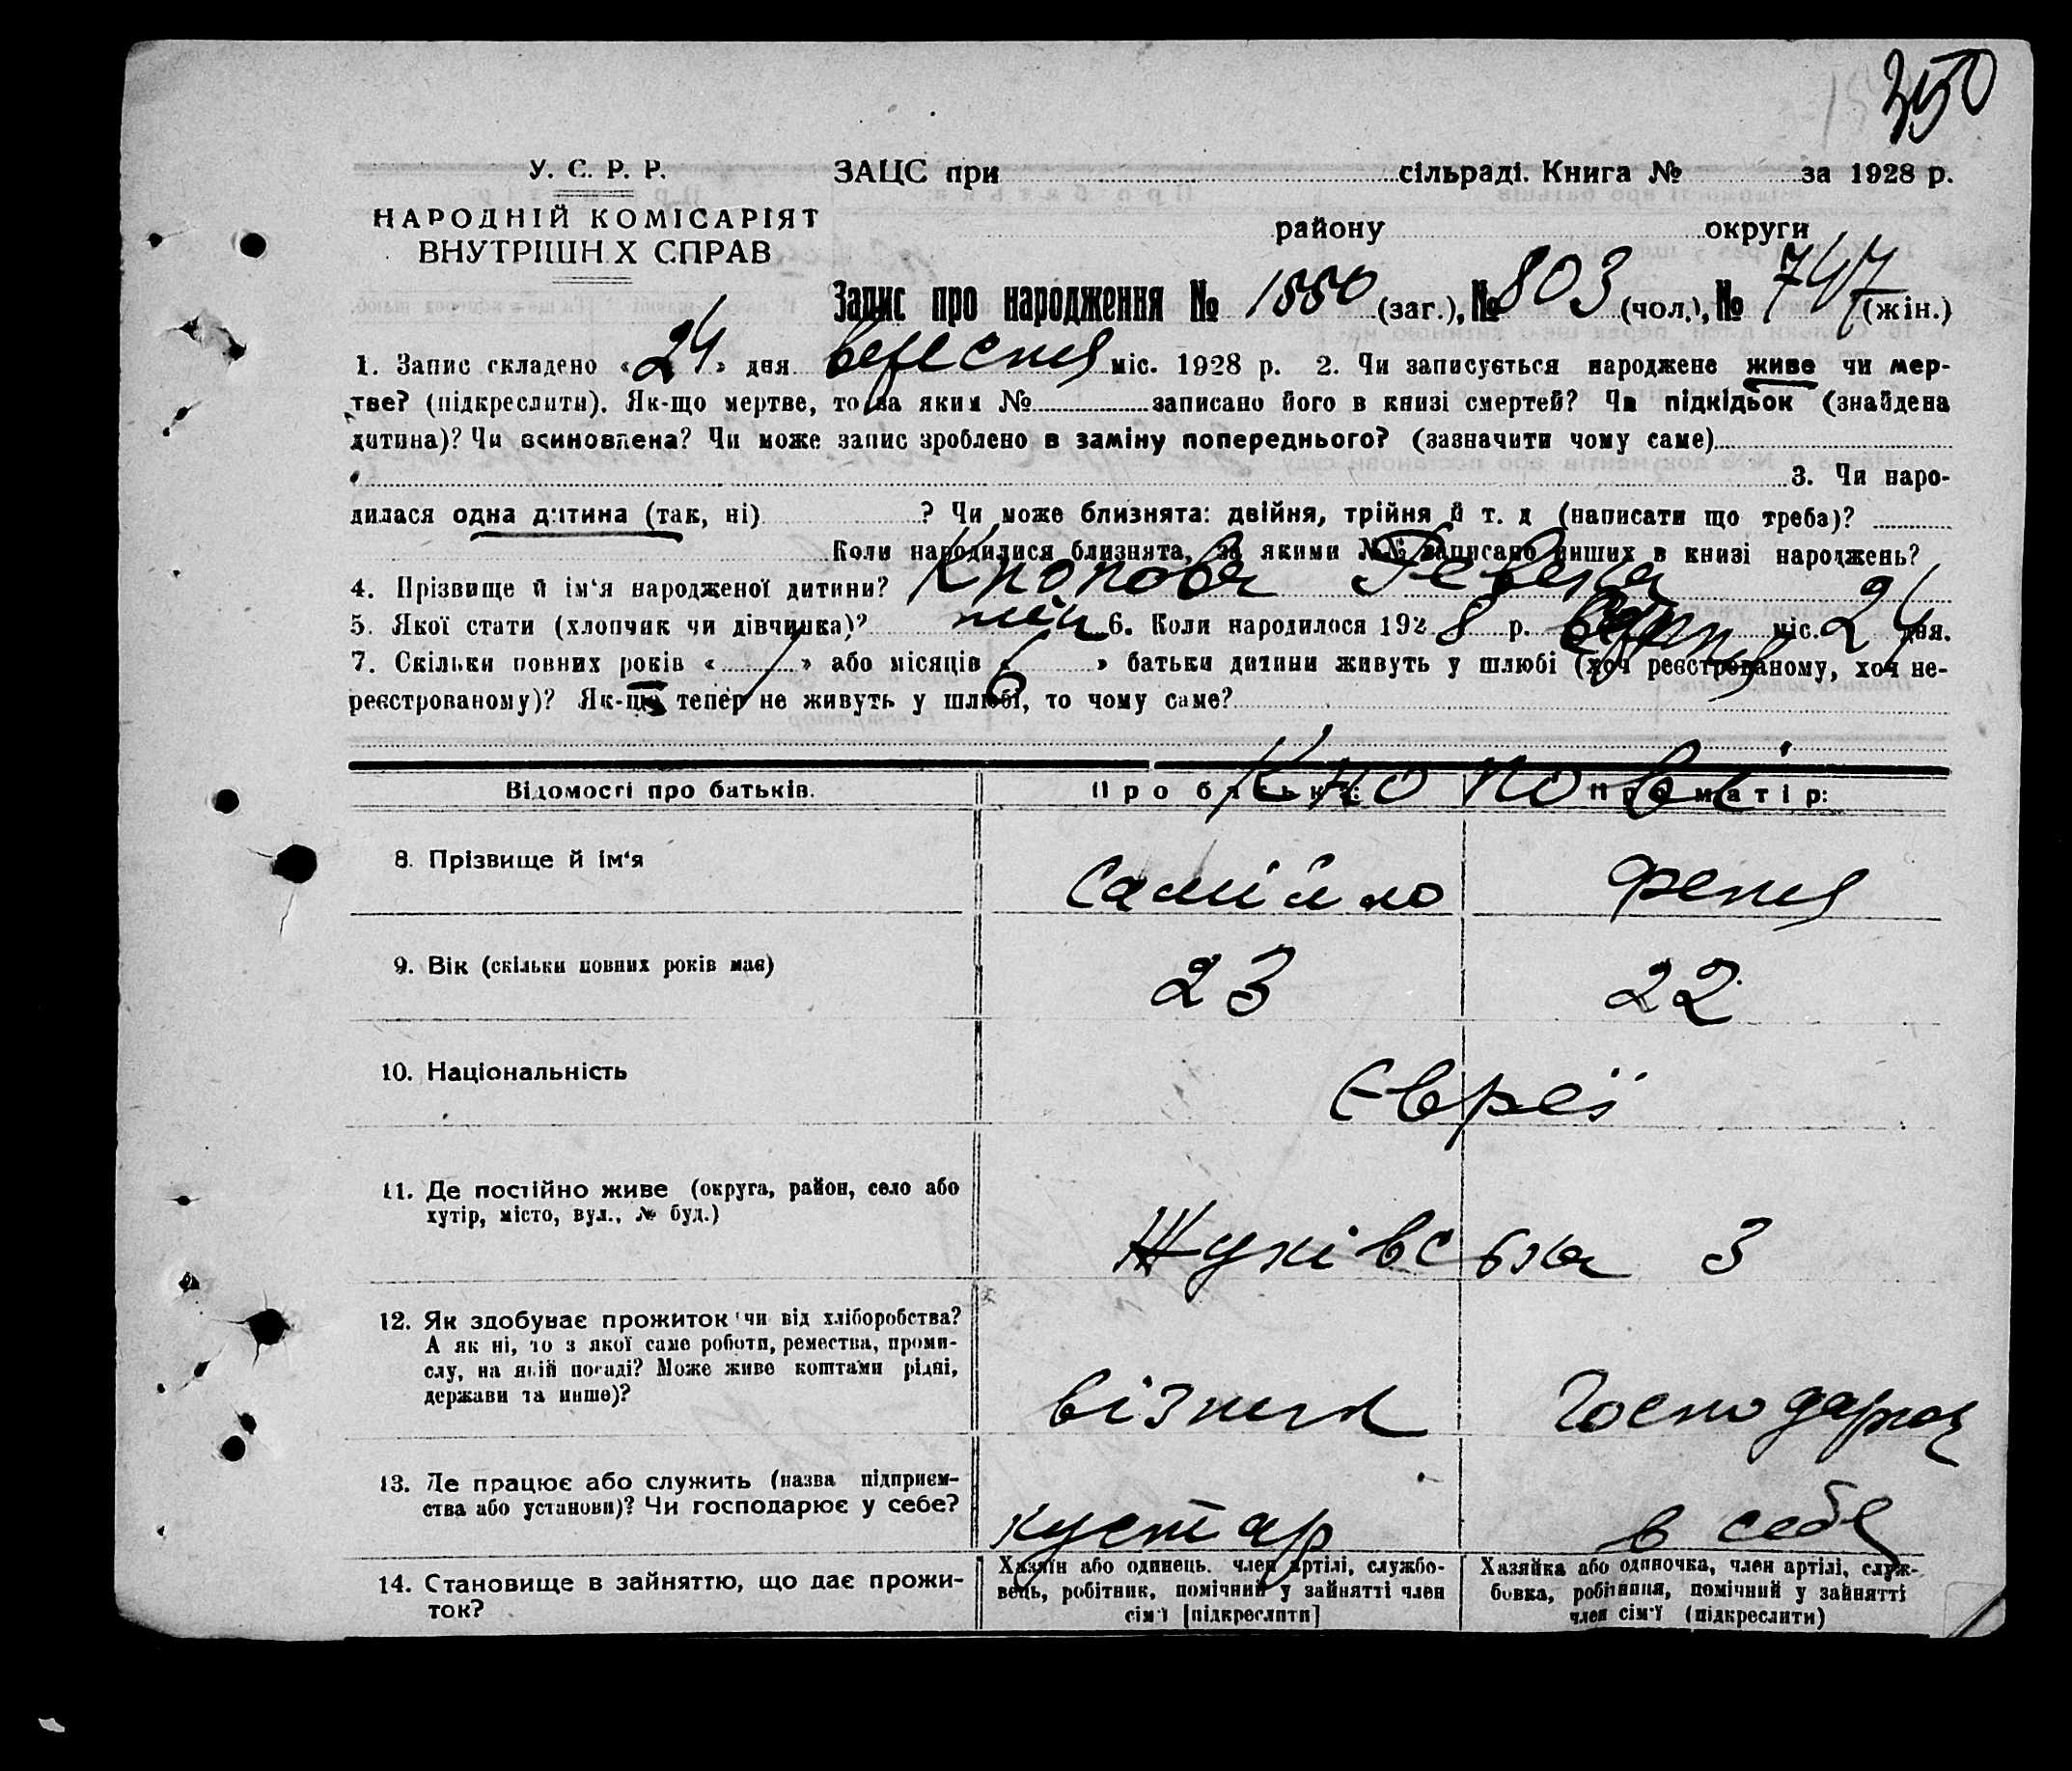 350
У. С. Р. Р.
НАРОДНІЙ КОМІСАРІЯТ
ВНУТРІШН Х СПРАВ
ЗАЦС при сільраді. Книга № за 1928 р.
району округи
Запис про народження № 1550 (заг.), № 803 (чол.), № 747 (жін.)
1. Запис складено «24» дня вересня міс. 1928 р. 2. Чи записується народжене живе чи мер-
тве? (підкреслити). Як-що мертве, то за яким № записано його в книзі смертей? Чи підкідьок (знайдена
дитина)? Чи всиновлена? Чи може запис зроблено в заміну попереднього? (зазначити чому саме)
3. Чи наро-
дилася одна дитина (так, ні) ? Чи може близнята: двійня, трійня й т. д (написати що треба)?
Коли народилися близнята, за якими №№ записано инших в книзі народжень?
4. Прізвище й ім‘я народженої дитини? Кнопова Ревека
5. Якої стати (хлопчик чи дівчинка)? жін 6. Коли народилося 1928 р. міс. 2 дня.
7. Скільки повних років « 1 » або місяців « » батьки дитини живуть у шлюбі (хоч реєстрованому, хоч не-
реєстрованому)? Як-що тепер не живуть у шлюбі, то чому саме?
Кнопові
Відомості про батьків. Про батька: Про матір:
8. Прізвище й ім‘я Самійло Феня
9. Вік (скільки повних років має) 23 22
10. Національність Євреї
11. Де постійно живе (округа, район, село або
хутір, місто, вул., № буд.)
Жуківська 3
12. Як здобуває прожиток чи від хліборобства?
А як ні, то з якої саме роботи, ремества, проми-
слу, на якій посаді? Може живе коштами рідні,
держави та инше)?
візник Господарка
13. Де працює або служить (назва підприєм-
ства або установи)? Чи господарює у себе?
кустар в себе
14. Становище в зайняттю, що дає прожи-
ток?
Хазяїн або одинець, член артілі, службо-
вець, робітник, помічний у зайнятті член
сім‘ї [підкреслити]
Хазяйка або одиночка, член артілі, служ-
бовка, робітниця, помічний у зайнятті
член сім‘ї (підкреслити)